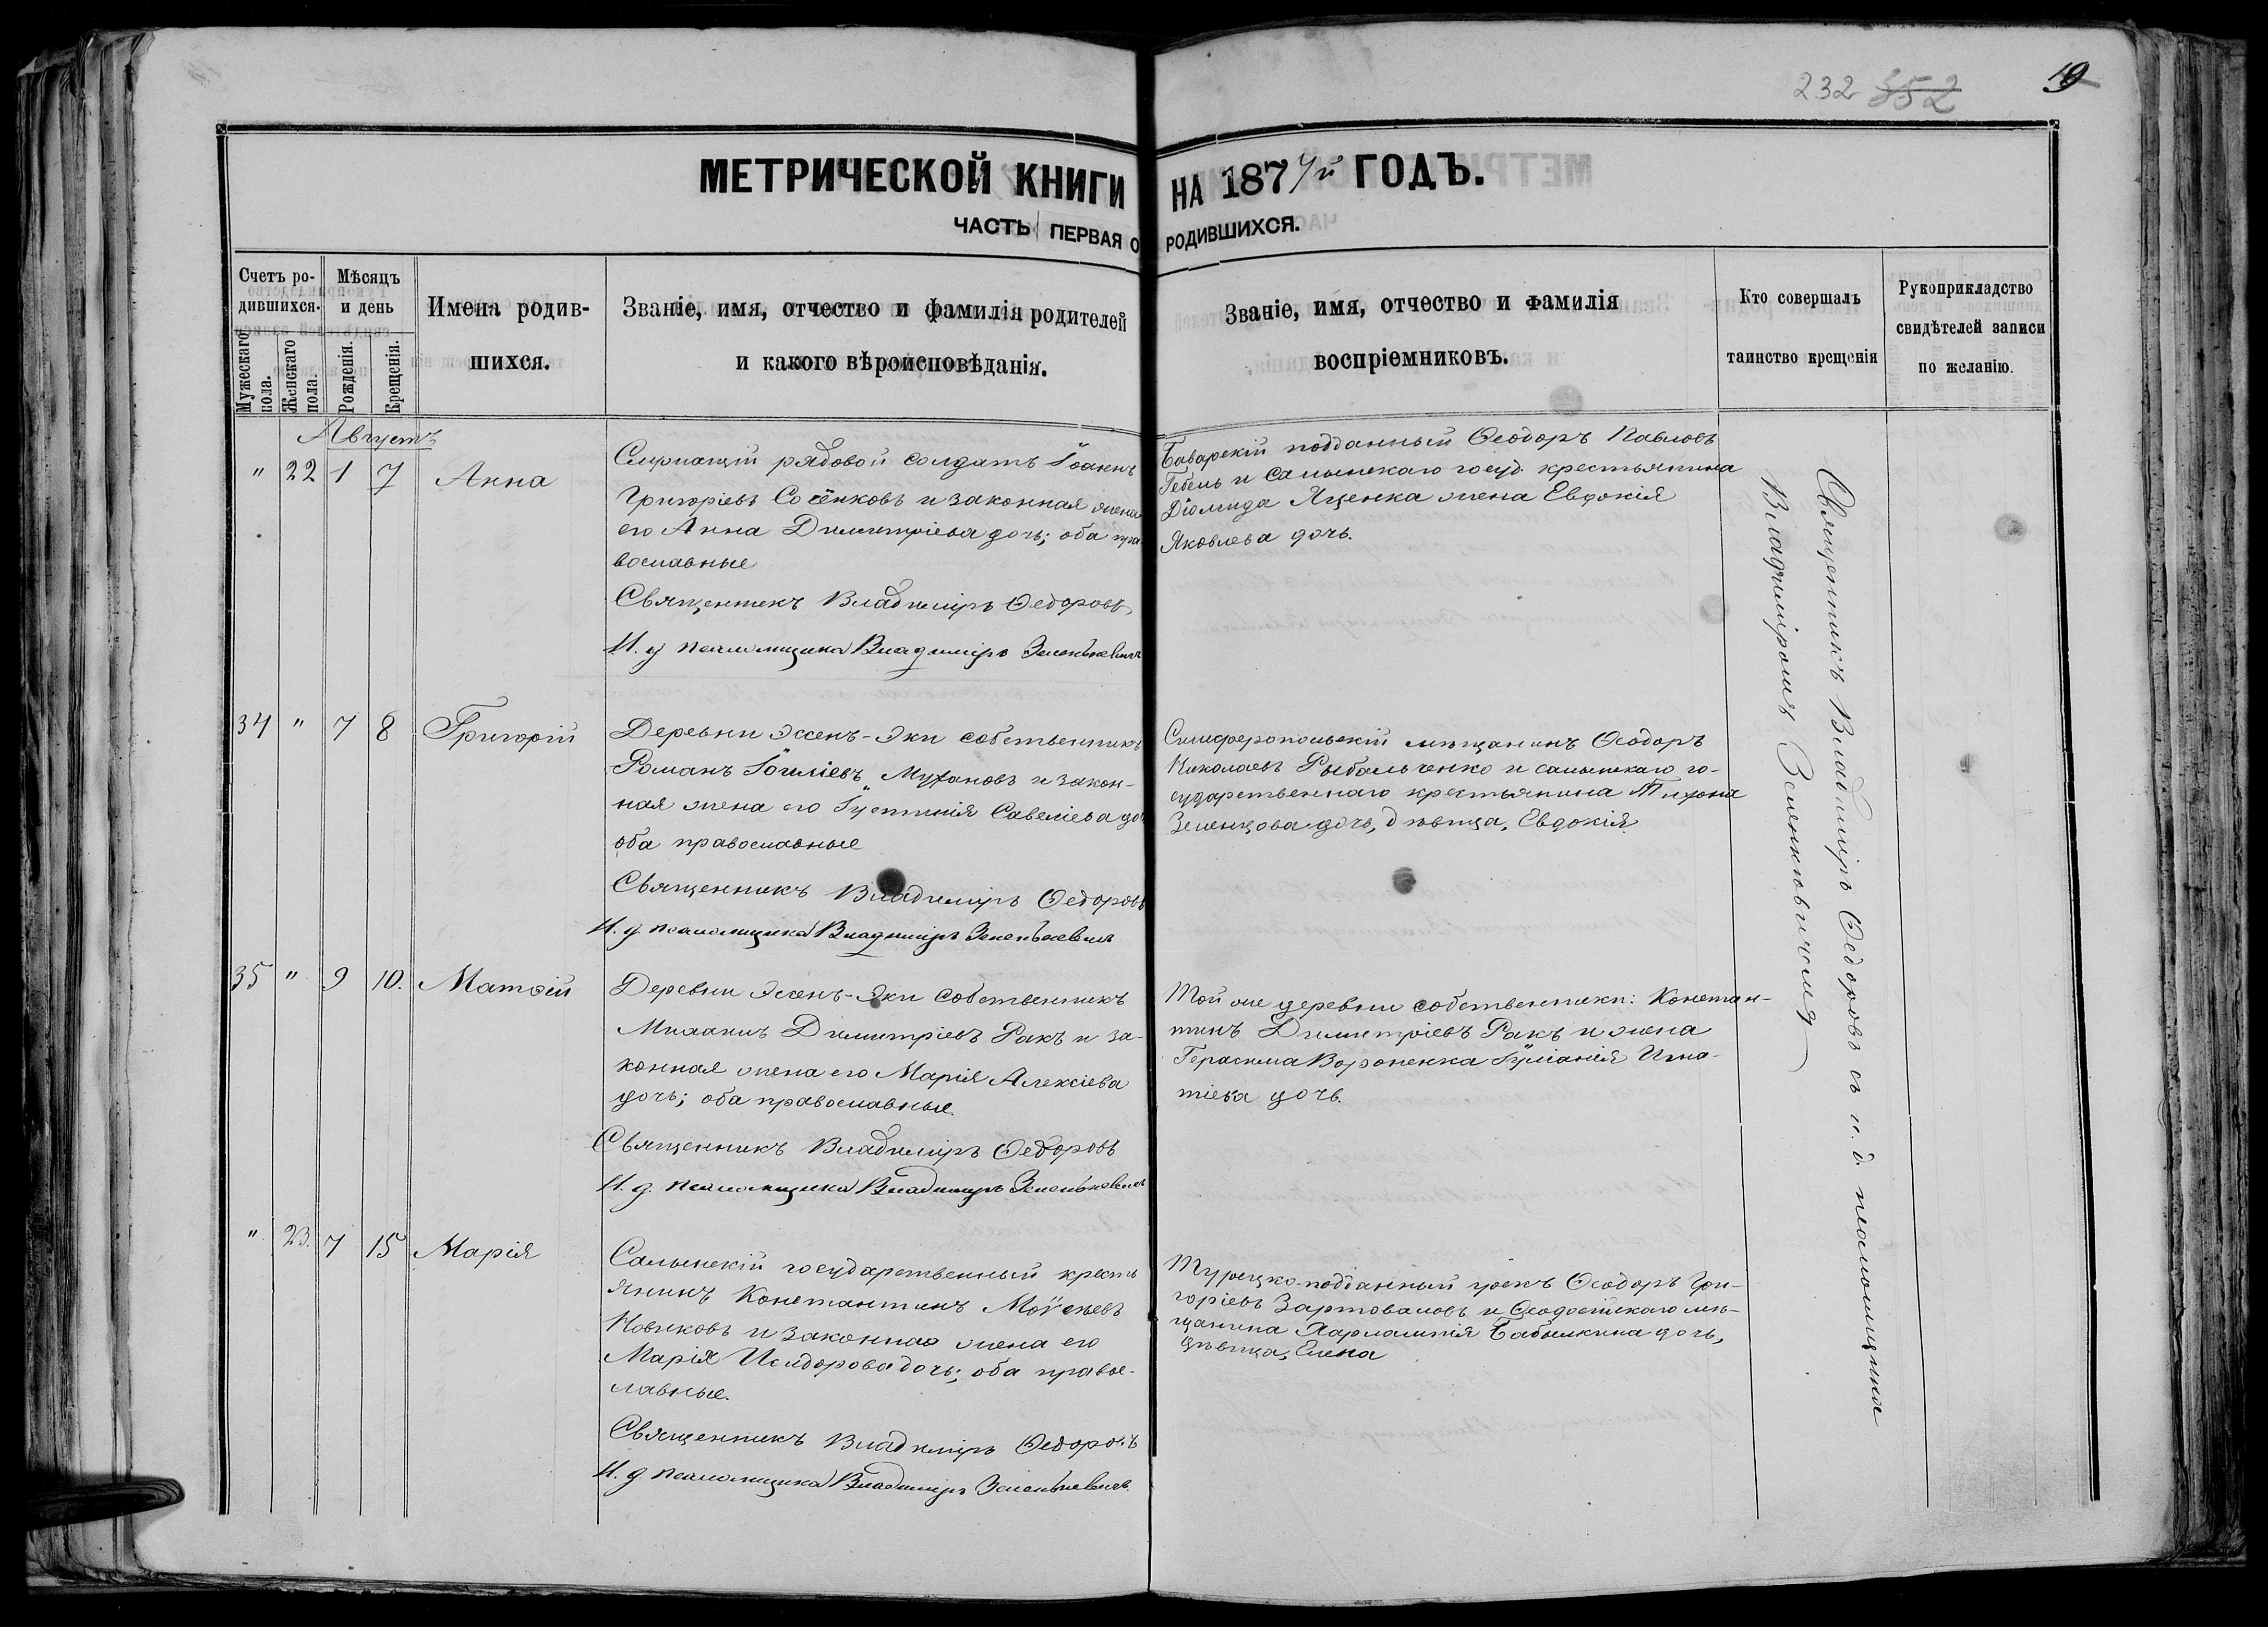 232 352 19
МЕТРИЧЕСКОЙ КНИГИ НА 1874й ГОДЪ.
ЧАСТЬ ПЕРВАЯ О РОДИВШИХСЯ.
Счетъ ро-
дившихся.
Мужескаго
пола.
Женскаго
пола.
Мѣсяцъ
и день
Рожденія.
Крещенія.
Имена родив-
шихся.
Званіе, имя, отчество и фамилія родителей
и какого вѣроисповѣданія.
Званіе, имя, отчество и фамилія
воспріемниковъ.
Кто совершалъ
таинство крещенія
Рукоприкладство
свидѣтелей записи
по желанію.
Августъ
" 22 1 7 Анна
Служащій рядовой солдатъ Іоаннъ
Григоріевъ и законная жена
его Анна Димитріева дочь; оба пра
вославные
Священникъ Владиміръ Ѳедоровъ
И. д псаломщика Владиміръ Зеленькевичъ
Баварскій подданный Ѳеодоръ Павловъ
Гебель и Салынскаго госуд. крестьянина
Діомида Яценка жена Евдокія
Яковлева дочь.
34 " 7 8 Григорій
Деревни Эссенъ-Эки собственникъ
Романъ и закон-
ная жена его Іустинія Савеліева до
оба православные
Священникъ Владиміръ Ѳедоровъ
И. д. псаломщика Владиміръ Зеленькевичъ
Симферопольскій мѣщанинъ Ѳеодоръ
Николаевъ Рыбальченко и салынскаго го-
сударственнаго крестьянина Тихона
Зеленцова дочь, дѣвица, Евдокія
35 " 9 10. Матѳій
Деревни Эсенъ-Эки собственникъ
Михаилъ Димитріевъ Ракъ и за-
конная жена его Марія Алексіева
дочь; оба православные.
Священникъ Владиміръ Ѳедоровъ
И. д. псаломщика Владиміръ Зеленькевичъ
Той же деревни собственники: Констан-
тинъ Димитріевъ Ракъ и жена
Герасима Вороненка Іуліанія Игна-
тіева дочь.
" 23. 7 15 Марія
Салынскій государственный кресть
янинъ Константинъ Моѵсеевъ
Новиковъ и законная жена его
Марія Исидорова дочь; оба правос-
лавные.
Священникъ Владиміръ Ѳедоровъ
И. д псаломщика Владиміръ Зеленькевичъ.
Турецко-подданный грекъ Ѳеодоръ Гри-
горіевъ Зартоваловъ и Ѳеодосійскаго мѣ-
щанина Харлампія Бабылкина дочь,
дѣвица, Елена
Священникъ Владиміръ Ѳедоровъ съ и. д. псаломщика
Владиміромъ Зеленкевичемъ